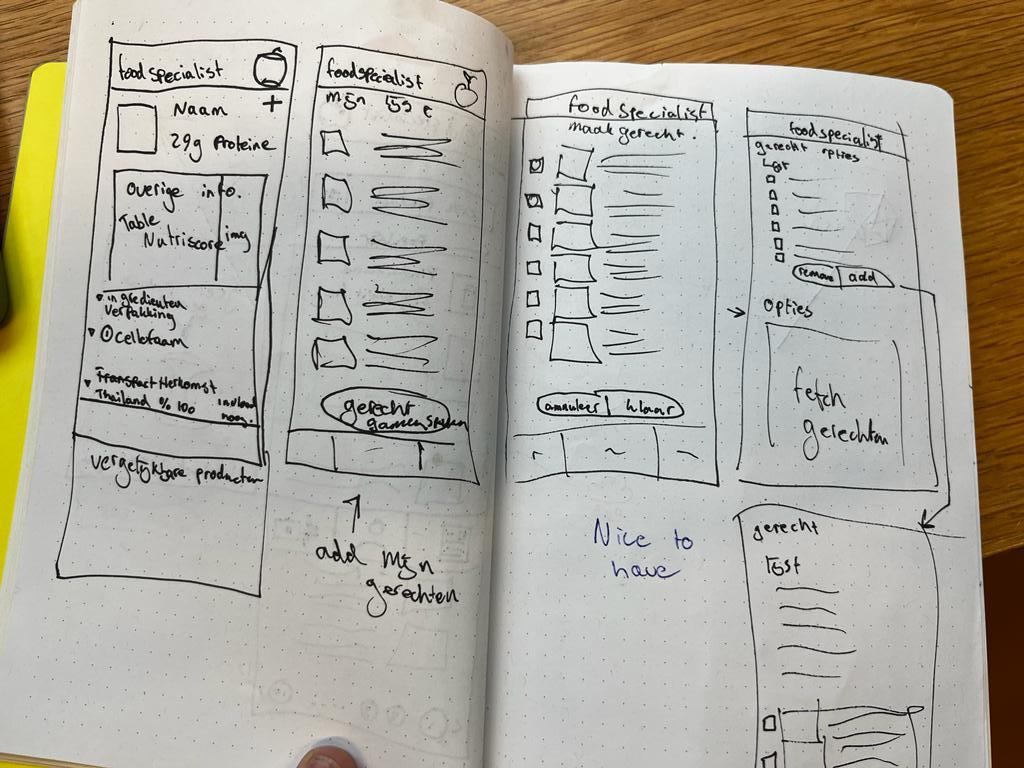 foodspecialist
+
Naam
29g Proteine
Overige info.
Table
Nutriscore
img
ingredienten
Verpakking
cellofaam
Transpact Herkomst
Thailand % 100
vergelijkbare producten
foodspecialist
mijn lijst
gerecht
samenstellen
add mijn
gerechten
foodspecialist
maak gerecht.
annuleer | klaar
Nice to
have
foodspecialist
gerecht opties
List
remove | add
opties
fetch
gerechten
gerecht
lijst